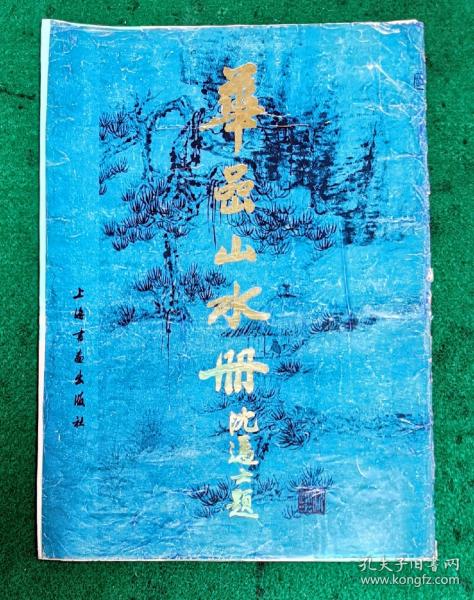 華嵒山水册
沈邁士題
上海書畫出版社
孔夫子旧书网
www.kongfz.com